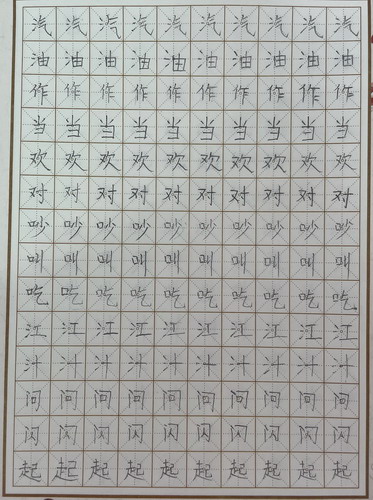 汽汽汽汽汽汽汽汽汽汽
油油油油油油油油油油
作作作作作作作作作作
当当当当当当当当当当
欢欢欢欢欢欢欢欢欢欢
对对对对对对对对对对
吵吵吵吵吵吵吵吵吵吵
叫叫叫叫叫叫叫叫叫叫
吃吃吃吃吃吃吃吃吃吃
江江江江江江江江江江
汁汁汁汁汁汁汁汁汁汁
问问问问问问问问问问
闪闪闪闪闪闪闪闪闪闪
起起起起起起起起起起